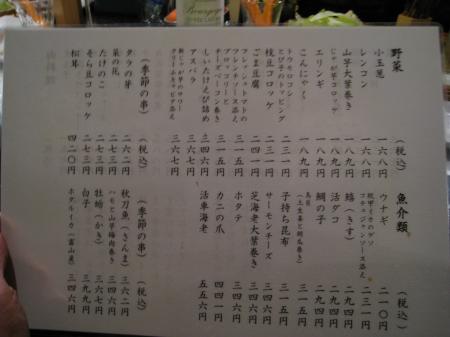 野菜 （税込）
小玉葱 一六八円
レンコン 一六八円
山芋大葉巻き 一八九円
じゃが芋コロッケ 一八九円
エリンギ 一八九円
こんにゃく 一八九円
トウモロコシ
とび子のトッピング 二三一円
枝豆コロッケ 二三一円
ごま豆腐 二四一円
フレッシュトマトの
フレンチソース添え 三一五円
アンチョビーと
チーズベーコン巻き 三一五円
しいたけえび詰め 三四六円
アスパラ 三六七円
新じゃが芋のサワー
クリームキャビア添え 三六七円
（季節の串） （税込）
タラの芽 二六二円
菜の花 二七三円
たけのこ 二七三円
そら豆コロッケ 二七三円
松茸 四二〇円
魚介類 （税込）
ウナギ 二一〇円
紋甲イカのゲソ
コチュジャンソース添え 二三一円
鱚（きす） 二九四円
活ダコ 二九四円
鯛の子 二九四円
鳥貝
（土生姜と胡瓜巻き） 三一五円
子持ち昆布 三一五円
サーモンチーズ 三一五円
芝海老大葉巻き 三四六円
ホタテ 三四六円
カニの爪 四四一円
活車海老 五五六円
（季節の串） （税込）
秋刀魚（さんま） 三六二円
ハモと山芋梅肉巻き 三四六円
牡蛎（かき） 三六七円
白子 三九九円
ホタルイカ（富山産） 三四六円